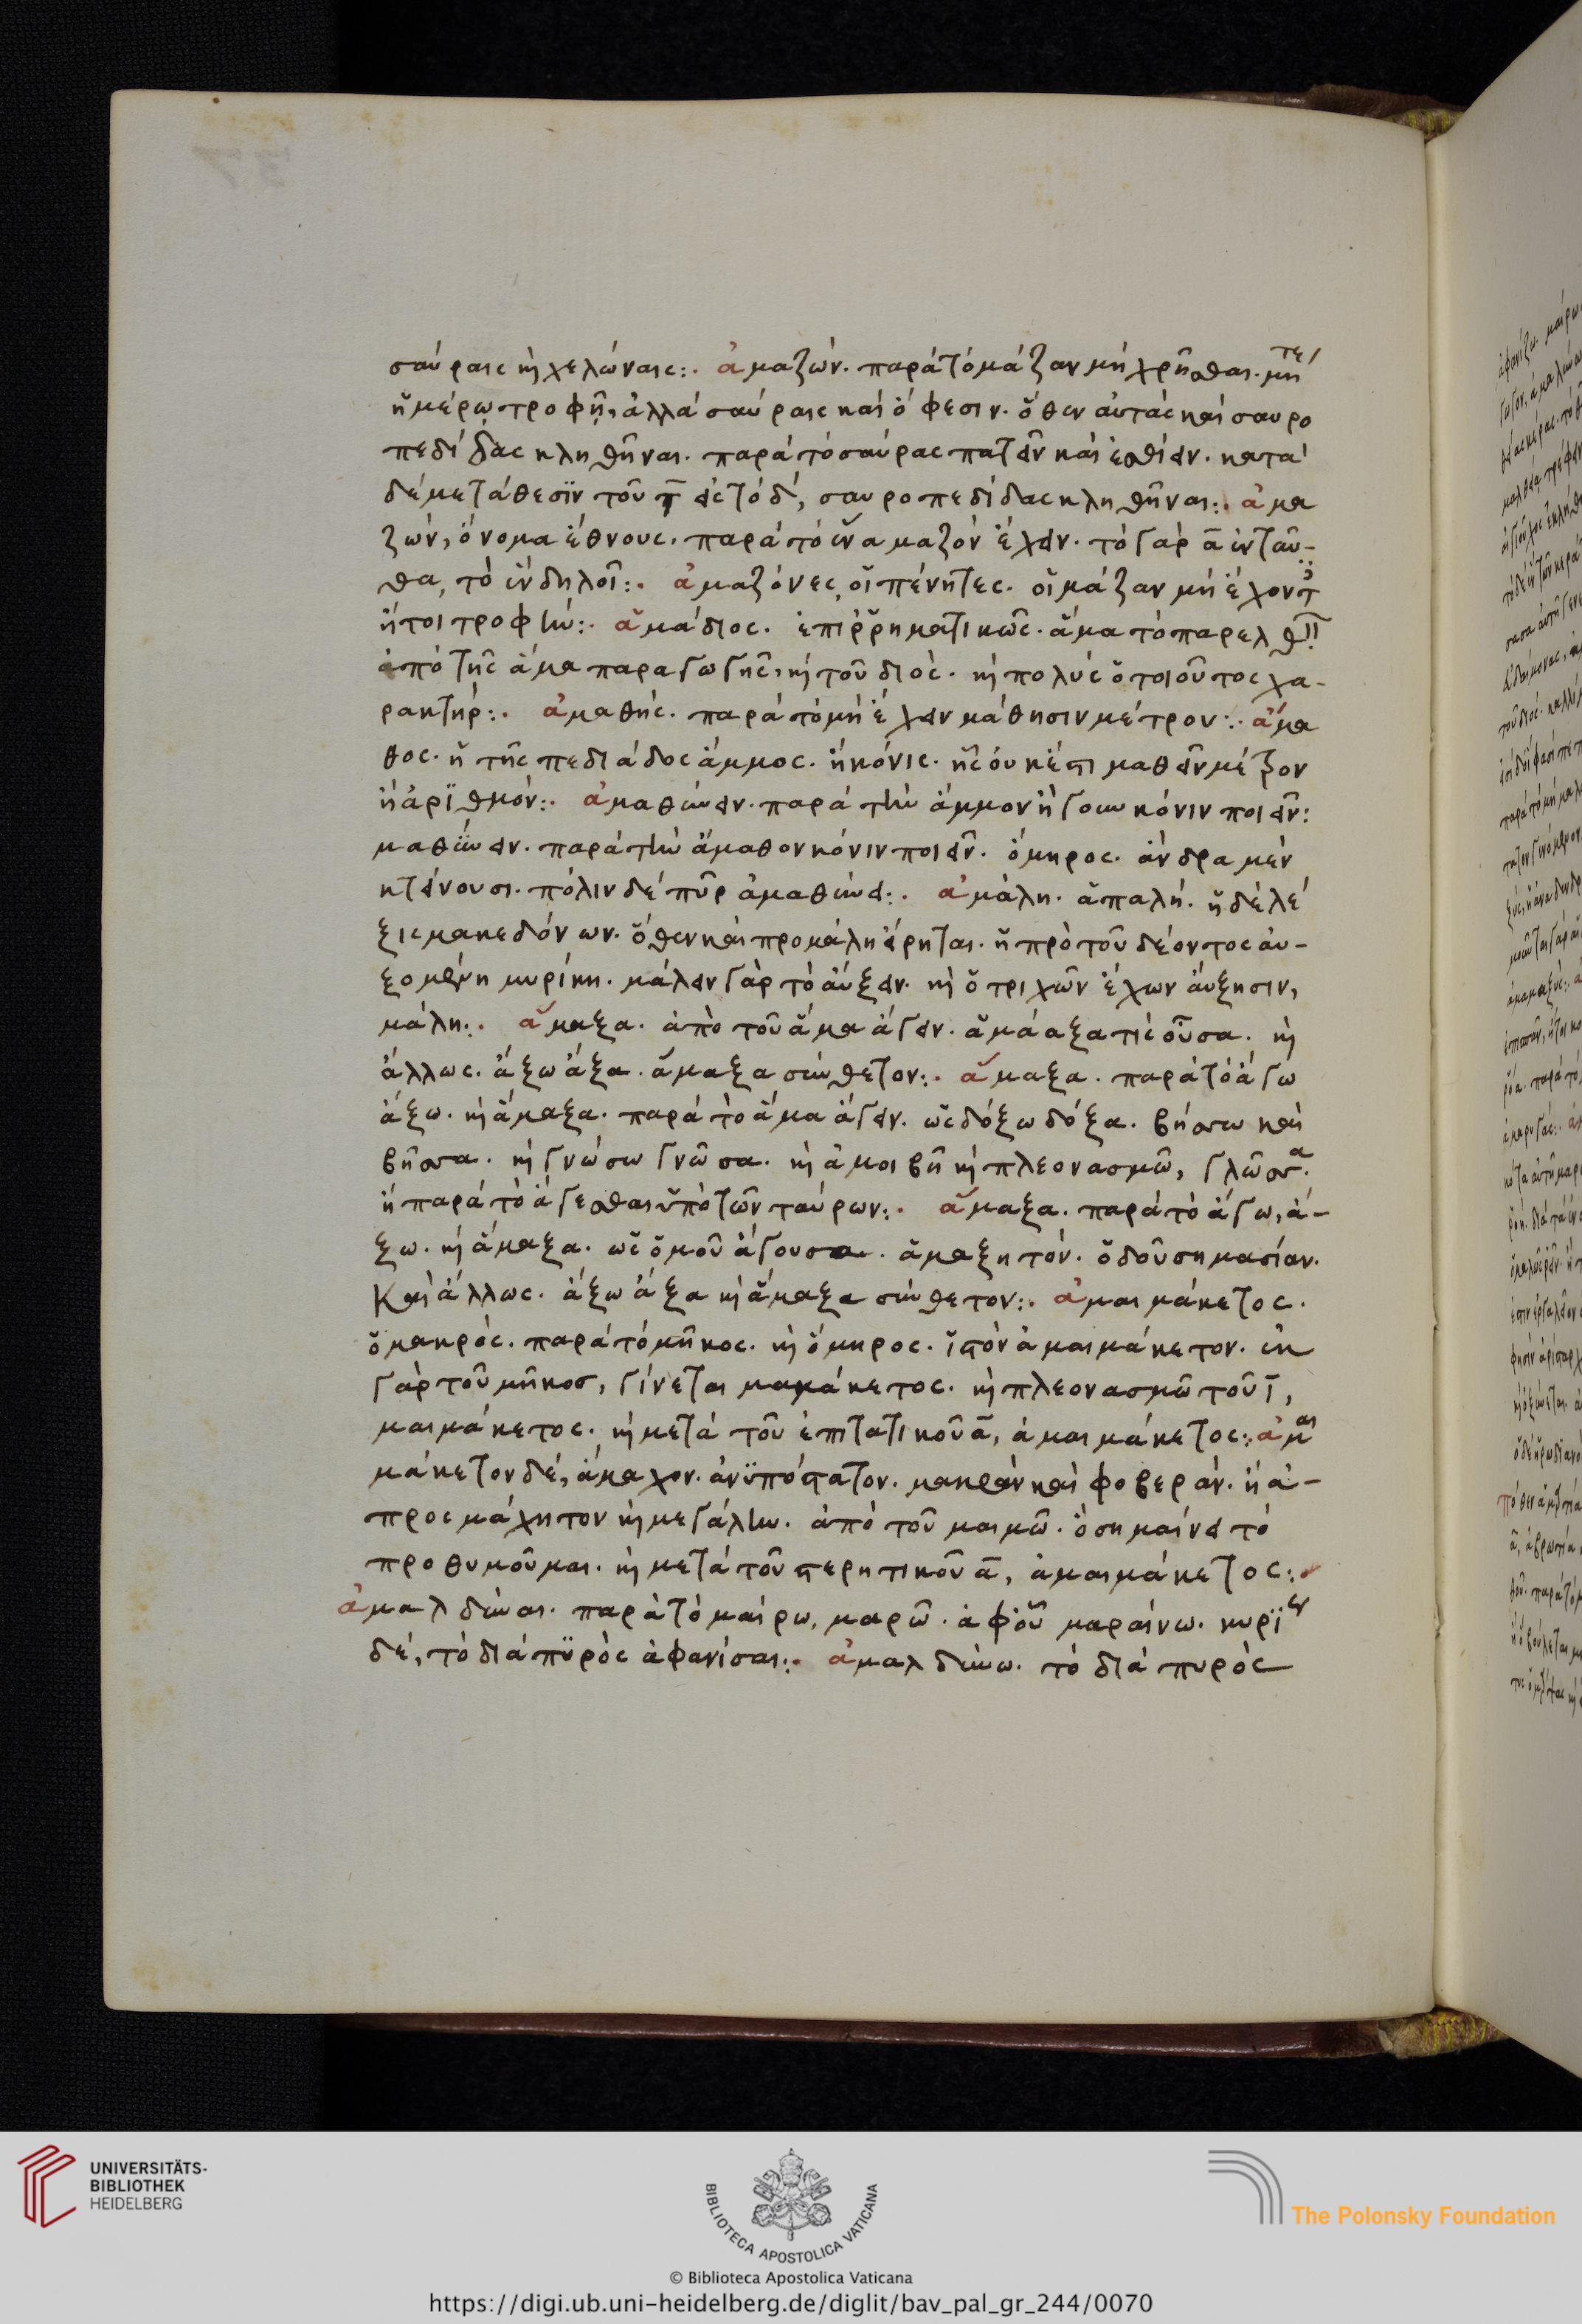 σαύραις καὶ χελώναις:. ἀμαζών. παρὰ τὸ μάζαν μὴ χρῆσθαι. μήτε
ἡμέρω τροφῆ, ἀλλὰ σαύραις καὶ ὄφεσιν. ὅθεν αὐτὰς καὶ σαυρο
πεδίδας κληθῆναι. παρὰ τὸ σαύρας πατεῖν καὶ ἐσθίειν. κατὰ
δὲ μετάθεσϊν τοῦ τ̄ εἰς τὸ δ, σαυροπεδίδας κληθῆναι:. ἀμα
ζών, ὄνομα ἔθνους. παρὰ τὸ ἕνα μαζὸν ἔχειν. τὸ γὰρ ᾱ ἐνταῦ-
θα, τὸ ἓν δηλοῖ:. ἀμαζόνες, οἱ πένητες. οἱ μάζαν μὴ ἔχοντ
ἤτοι τροφήν:. ἁμάδιος. ἐπιῤῥηματικῶς. ἅμα τὸ παρελθ
ἀπὸ τῆς ἅμα παραγωγῆς, καὶ τοῦ διός. καὶ πολὺς ὁ τοιοῦτος χα-
ρακτήρ:. ἀμαθής. παρὰ τὸ μὴ ἔχειν μάθησιν μέτρον:. ἄμα
θος. ἡ τῆς πεδιάδος ἄμμος. ἢ κόνις. ἧς οὐκ ἔστι μαθεῖν μέτρον
ἢ ἀρϊθμόν:. ἀμαθύνειν. παρὰ τὴν ἄμμον ἤγουν κόνιν ποιεῖν:
μαθύνειν. παρὰ τὴν ἄμαθον κόνιν ποιεῖν. ὅμηρος. ἄνδρα μὲν
κτείνουσι. πόλιν δέ πῦρ ἀμαθύνει:. ἁμάλη. ἁπαλή. ἡ δὲ λέ
ξις μακεδόνων. ὅθεν καὶ προμάλη εἴρηται. ἡ πρὸ τοῦ δέοντος αὐ-
ξομένη μυρίκη. μάλειν γὰρ τὸ αὔξειν. καὶ ὁ τριχῶν ἔχων αὔξησιν,
μάλη:. ἅμαξα. ἀπὸ τοῦ ἅμα ἄγειν. ἁμάαξα τὶς οὖσα. καὶ
ἄλλως. ἄξω ἄξα. ἅμαξα σύνθετον:. ἅμαξα. παρὰ τὸ ἄγω
ἄξω. καὶ ἅμαξα. παρὰ τὸ ἅμα ἄγειν. ὡς δόξω δόξα. βήσσω καὶ
βῆσσα. καὶ γνώσω γνῶσα. καὶ ἀμοιβῆ καὶ πλεονασμῶ, γλῶσσα.
ἢ παρὰ τὸ ἄγεσθαι ὑπὸ τῶν ταύρων:. ἅμαξα. παρὰ τὸ ἄγω, ἄ-
ξω. καὶ ἅμαξα. ὡς ὁμοῦ ἄγουσα. ἁμαξητόν. ὁδοῦ σημασίαν.
Καὶ ἄλλως. ἄξω ἄξα καὶ ἅμαξα σύνθετον:. ἀμαιμάκετος.
ὁ μακρός. παρὰ τὸ μῆκος. καὶ ὅμηρος. ἱστὸν ἀμαιμάκετον. ἐκ
γὰρ τοῦ μῆκοσ, γίνεται μαμάκετος. καὶ πλεονασμῶ τοῦ ῑ,
μαιμάκετος. καὶ μετὰ τοῦ ἐπιτατικοῦ ᾱ, ἀμαιμάκετος:. ἀμαι
μάκετον δέ, ἄμαχον. ἀνϋπόστατον. μακρὰν καὶ φοβεράν. ἢ ἀ-
προςμάχητον καὶ μεγάλην. ἀπὸ τοῦ μαιμῶ. ὃ σημαίνει τὸ
προθυμοῦμαι. καὶ μετὰ τοῦ στερητικοῦ ᾱ, ἀμαιμάκετος:.
ἀμαλδύναι. παρὰ τὸ μαίρω, μαρῶ. ἀφ' οὗ μαραίνω. κυρϊως
δέ, τὸ διὰ πϋρὸς ἀφανίσαι:. ἀμαλδύνω. τὸ διὰ πυρὸς
UNIVERSITÄTS-
BIBLIOTHEK
HEIDELBERG
BIBLIOTECA APOSTOLICA VATICANA
The Polonsky Foundation
© Biblioteca Apostolica Vaticana
https://digi.ub.uni-heidelberg.de/diglit/bav_pal_gr_244/0070